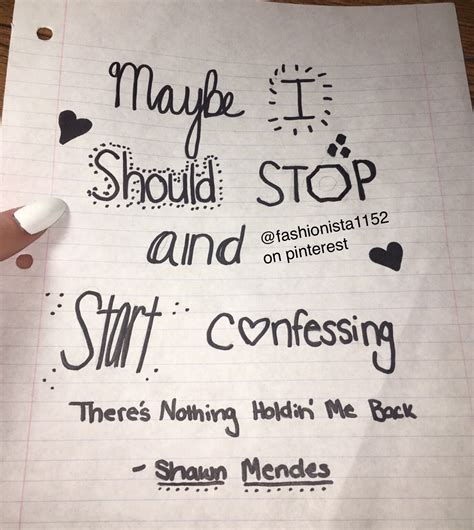 Maybe I
Should STOP
and
@fashionista1152
on pinterest
Start Confessing
There's Nothing Holdin' Me Back
- Shawn Mendes